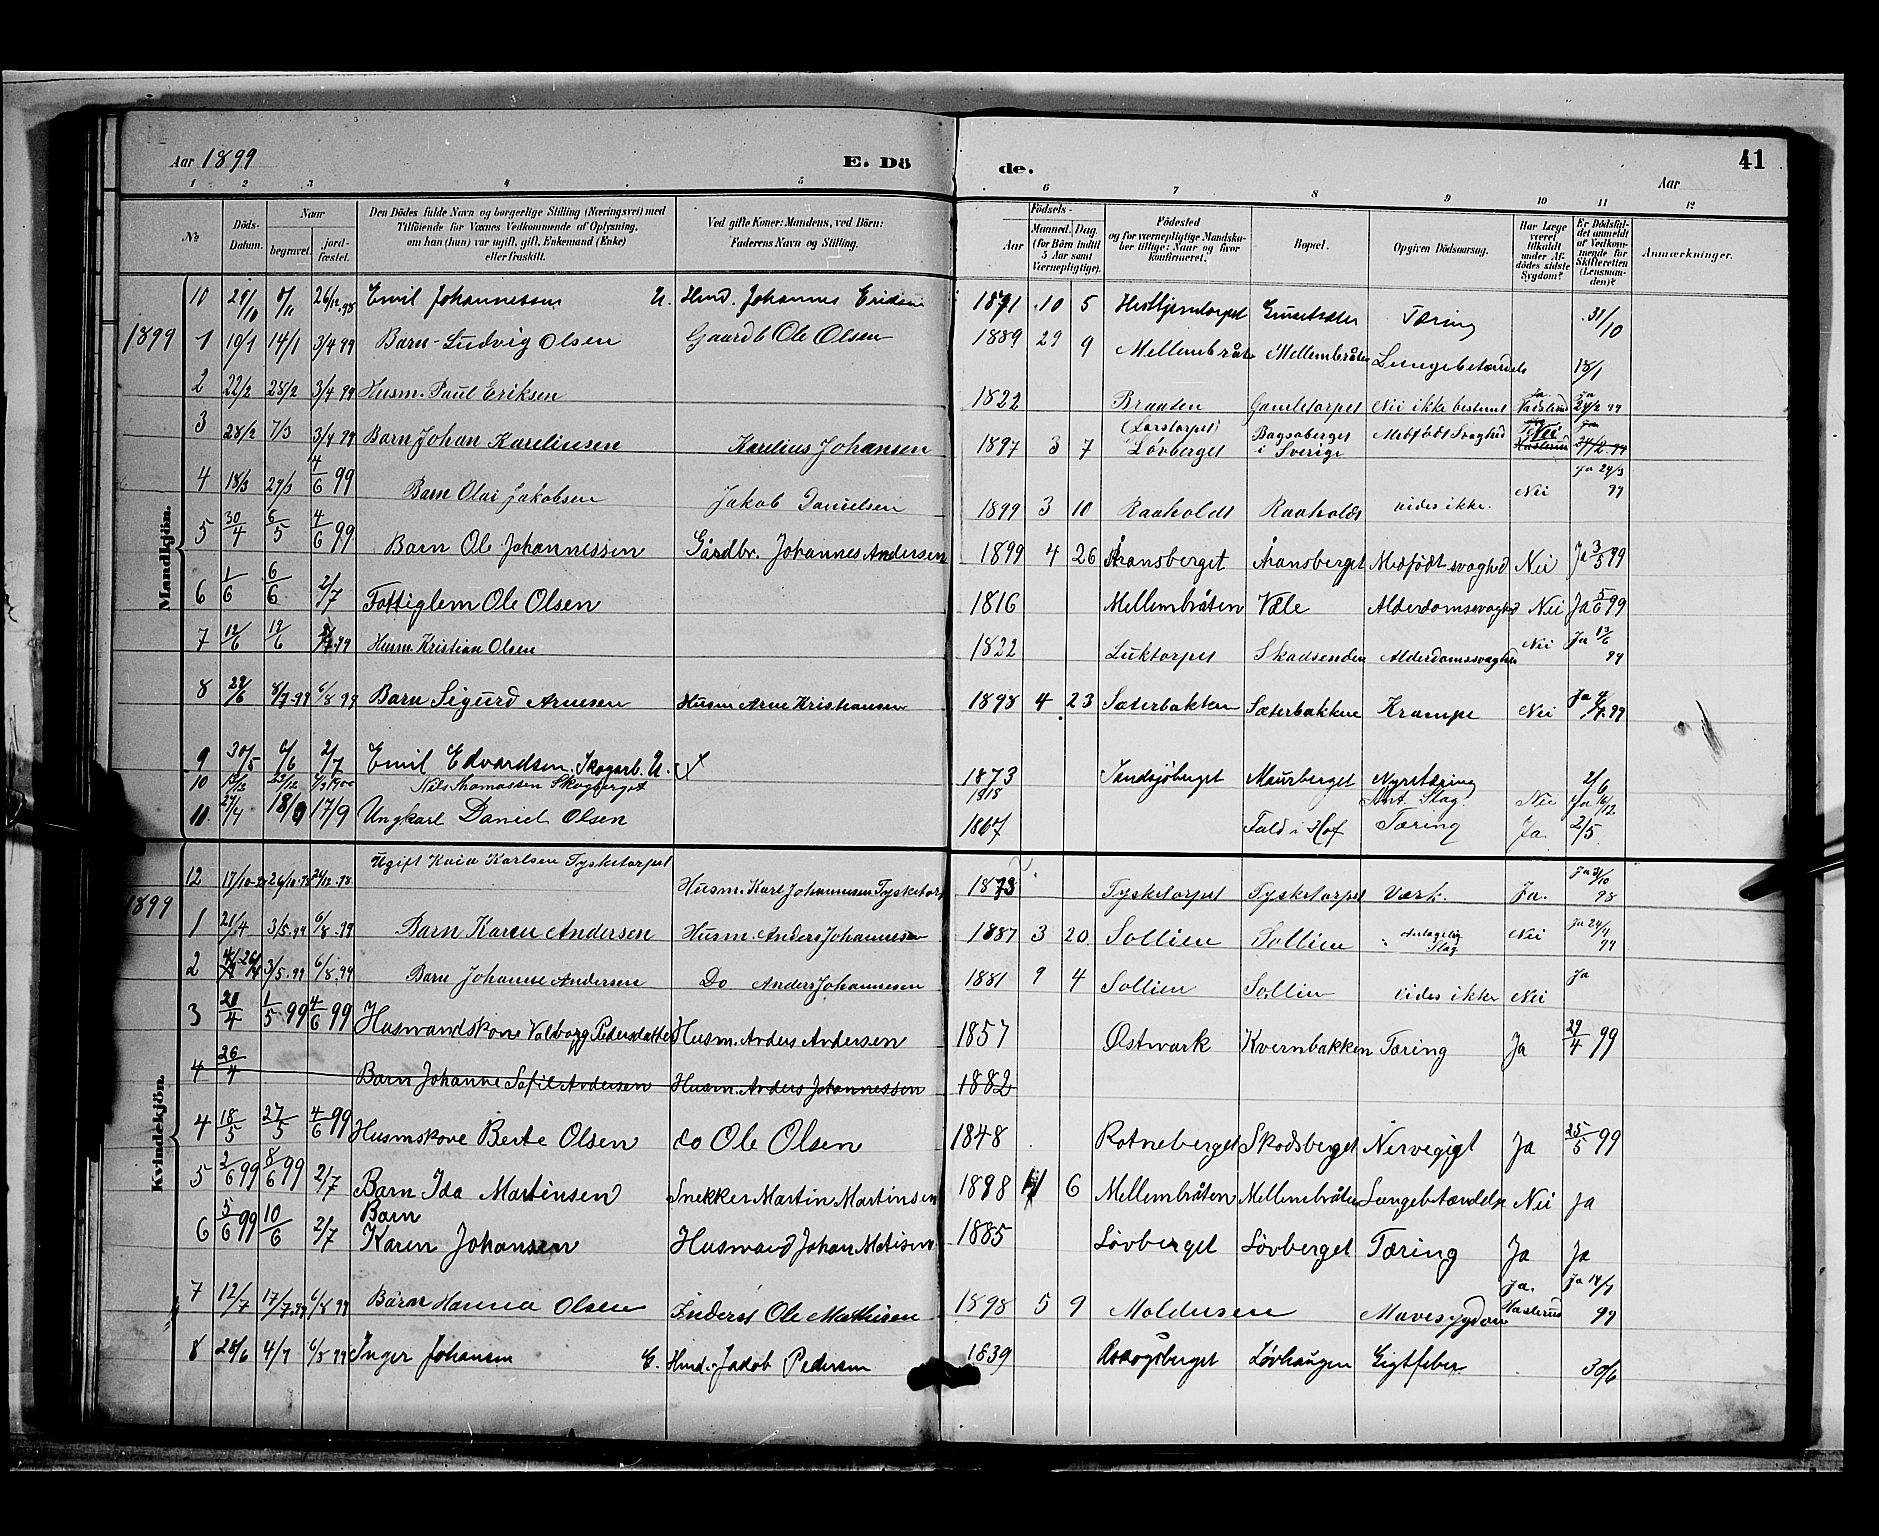 Aar 1899 E. Dö de. 41
Aar
1 2 3 4 5 6 7 8 9 10 11 12
№ Döds-Datum. Naar begravet. jord-fæstet. Den Dödes fulde Navn og borgerlige Stilling (Næringsvei) med Tilföiende for Voxnes Vedkommende af Oplysning, om han (hun) var ugift, gift, Enkemand (Enke) eller fraskilt. Ved gifte Koner: Mandens, ved Börn: Faderens Navn og Stilling. Födsels- Aar Maaned. Dag. (for Börn indtil 5 Aar samt Værnepligtige). Födested og for værnepligtige Mandskaber tillige: Naar og hvor konfirmeret. Bopæl. Opgiven Dödsaarsag. Har Læge været tilkaldt under Afdödes sidste Sygdom? Er Dödsfaldet anmeldt af Vedkommende for Skifteretten (Lensmanden)? Anmærkninger.
Mandkjön.
10 29/10 26/12 98 Emil Johannessen U. Hmd. Johannes Eriksen 1871 10 5 Tæring 31/10
1899 1 10/1 14/1 3/4 99 Barn Ludvig Olsen Gaardb Ole Olsen 1889 29 9 Mellembråten Mellembråten Lungebetændels 18/1
2 22/2 28/2 3/4 99 Husm. Paul Eriksen 1822 Braaten Gamletorpet Nei ikke bestemt Ja Ja 24/2 99
3 28/2 7/3 3/4 99 Barn Johan Kareliusen Karelius Johansen 1897 3 7 Løvberget i Sverige Medfødt Svaghed Nei
4 18/3 29/3 4/6 99 Barn Olai Jakobsen Jakob Danielsen 1899 3 10 Raaholdt Raaholdt vides ikke. Nei Ja 24/3 99
5 30/4 6/5 4/6 99 Barn Ole Johannessen Gårdbr. Johannes Andersen 1899 4 26 Åransberget Åransberget Medfödt svaghed Nei Ja 3/5 99
6 1/6 6/6 2/7 Fattiglem Ole Olsen 1816 Mellembråten Væle Alderdomssvaghed Nei Ja 5/6 99
7 12/6 19/6 Husm. Kristian Olsen 1822 Luktorpet Skadsenden Alderdomssvaghed Nei Ja 13/6 99
8 29/6 8/7 99 6/8 99 Barn Sigurd Arnesen Husm Arne Kristiansen 1898 4 23 Sæterbakken Sæterbakken Krampe Nei Ja
9 30/5 6/6 2/7 Emil Edvardsen. Skogarb. U. 1873 Sandsjöberget Maurberget Nyretæring 2/6
10 Nils Thomassen Skogberget 1818 Slag. Nei Ja 16/12
11 27/4 18/9 17/9 Ungkarl Daniel Olsen 1867 Fald i Hof Tæring Ja. 2/5
Kvindekjön.
12 17/10 98 26/10 98 Ugift Kaia Karlsen Tysketorpet Husm. Karl Johannesen Tysketorp 1873 Tysketorpet Tysketorpet Værk. Ja. Ja 31/10 98
1899 1 21/4 3/5 99 6/8 99 Barn Karen Andersen Husm. Anders Johannesen 1887 3 20 Sollien Sollien Slag Nei Ja 24/4 99
2 26/4 3/5 99 6/8 99 Barn Johanne Andersen Do Anders Johannesen 1881 9 4 Sollien Sollien vides ikke Nei Ja
3 21/4 1/5 99 4/6 99 Husmandskone Valborg Pedersdatter Husm. Anders Andersen 1857 Østmark Kvernbakken Tæring Ja 29/4 99
4 26/4 Barn Johanne Sofie Andersen Husm. Anders Johannessen 1882
4 18/5 27/5 4/6 99 Husmskone Berte Olsen do Ole Olsen 1848 Rotneberget Skodsberget Nervegigt Ja 25/5 99
5 2/6 99 8/6 99 2/7 Barn Ida Martinsen Snekker Martin Martinsen 1898 6 Mellembråten Mellembråten Lungebetændelse Nei Ja
6 5/6 99 10/6 2/7 Barn Karen Johansen Husmand Johan Matisen 1885 Løvberget Løvberget Tæring Ja Ja
7 12/7 17/7 99 6/8 99 Barn Hanna Olsen Inderst Ole Mathisen 1898 5 9 Moldusen Mavesygdom Ja. Ja 14/7 99
8 28/6 4/7 6/8 99 Inger Johansen E. Hmd. Jakob Pedersen 1839 Løvhaugen Gigtfeber 30/6